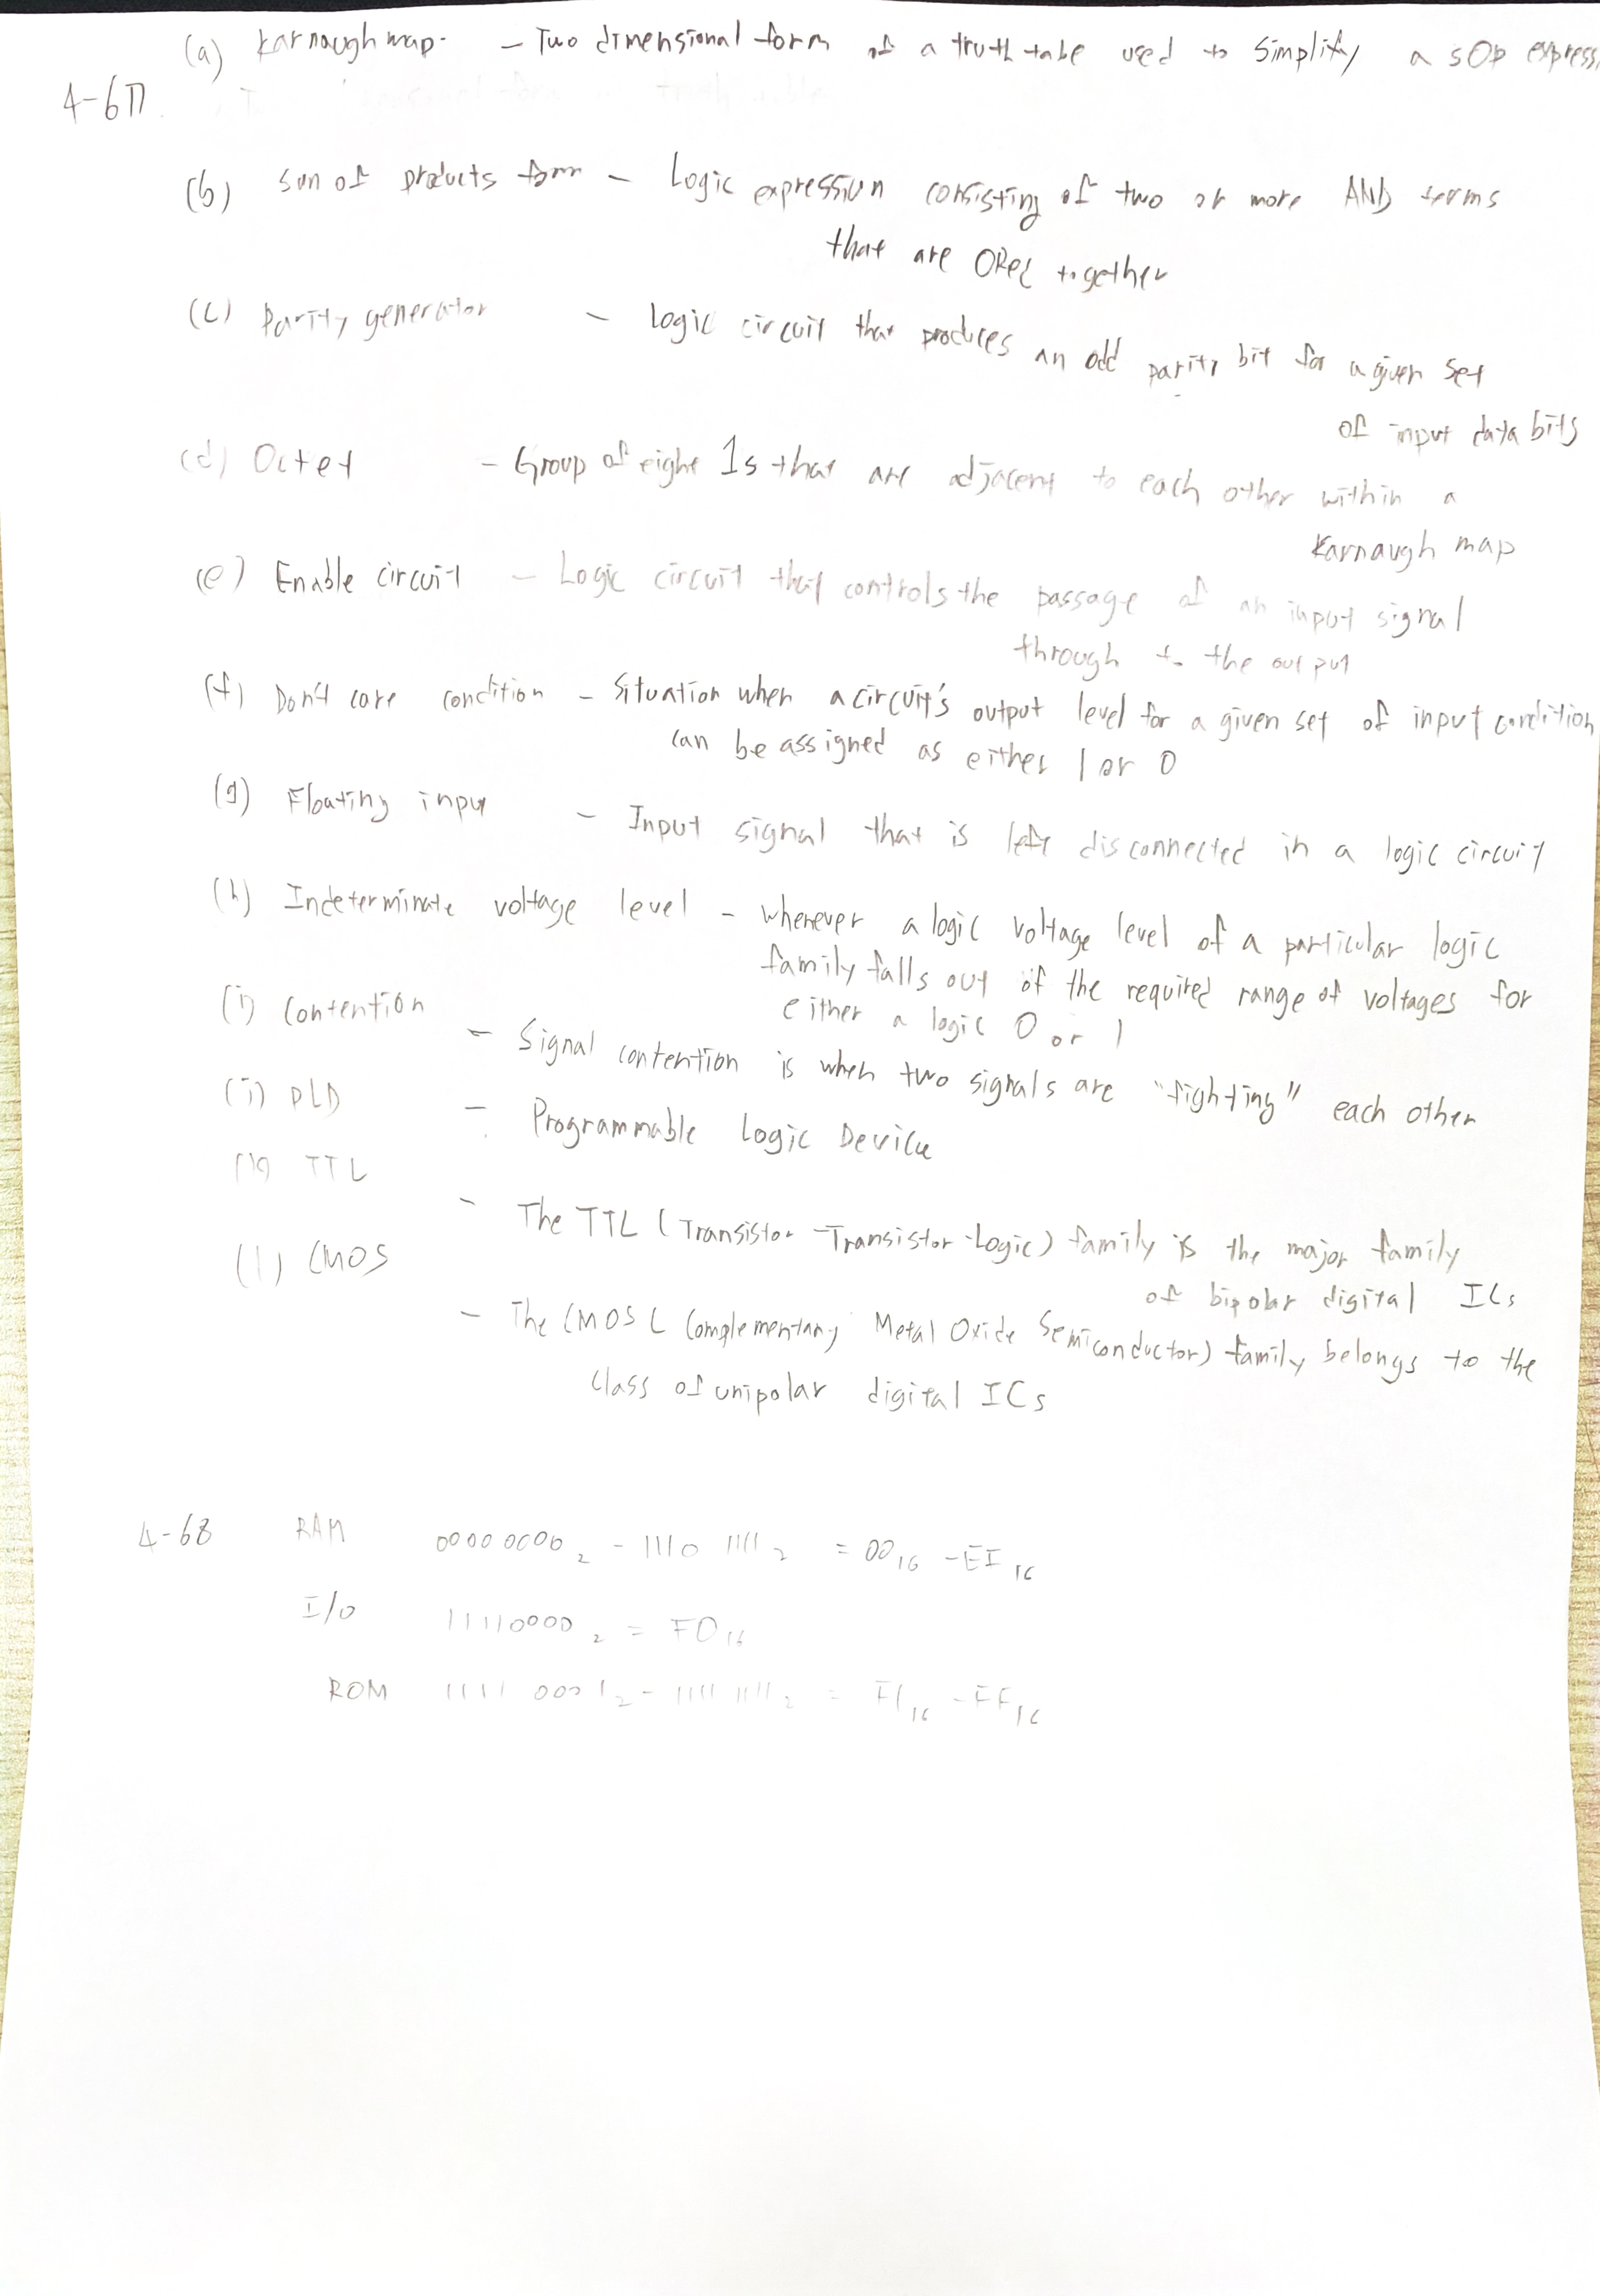 (a) Karnaugh map - Two dimensional form of a truth table used to simplify a SOP express
4-67
(b) Sum of products form - Logic expression consisting of two or more AND terms
that are ORed together
(c) Parity generator - Logic circuit that produces an odd parity bit for a given set
of input data bits
(d) Octet - Group of eight 1s that are adjacent to each other within a
Karnaugh map
(e) Enable circuit - Logic circuit that controls the passage of an input signal
through to the output
(f) Don't care condition - Situation when a circuit's output level for a given set of input condition
can be assigned as either 1 or 0
(g) Floating input - Input signal that is left disconnected in a logic circuit
(h) Indeterminate voltage level - whenever a logic voltage level of a particular logic
family falls out of the required range of voltages for
either a logic 0 or 1
(i) Contention - Signal contention is when two signals are "fighting" each other
(j) PLD - Programmable Logic Device
(k) TTL - The TTL (Transistor-Transistor-Logic) family is the major family
of bipolar digital ICs
(l) CMOS - The CMOS (Complementary Metal Oxide Semiconductor) family belongs to the
class of unipolar digital ICs
4-68 RAM 00000000₂ - 1110 1111₂ = 00₁₆ - EF₁₆
I/O 11110000₂ = F0₁₆
ROM 1111 0001₂ - 1111 1111₂ = F1₁₆ - FF₁₆